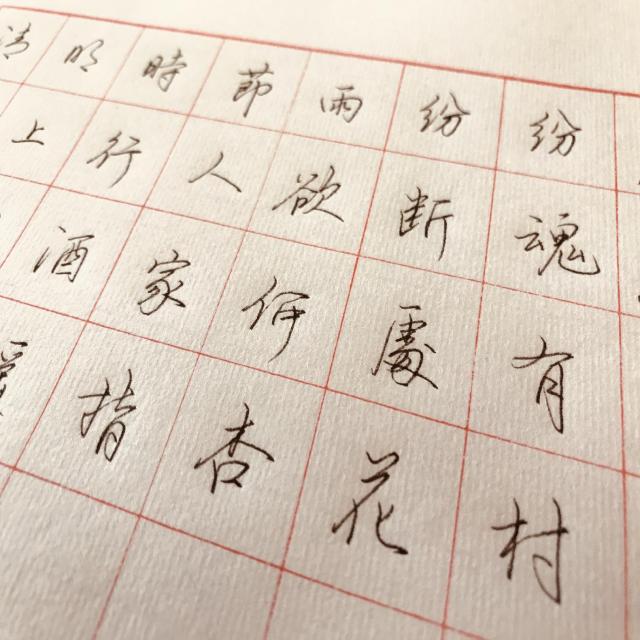 清明時節雨纷纷
上行人欲断魂
酒家何處有
指杏花村